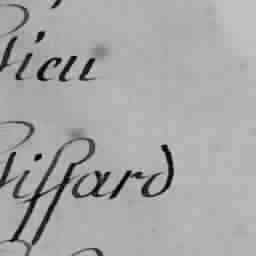 Dieu
Giffard